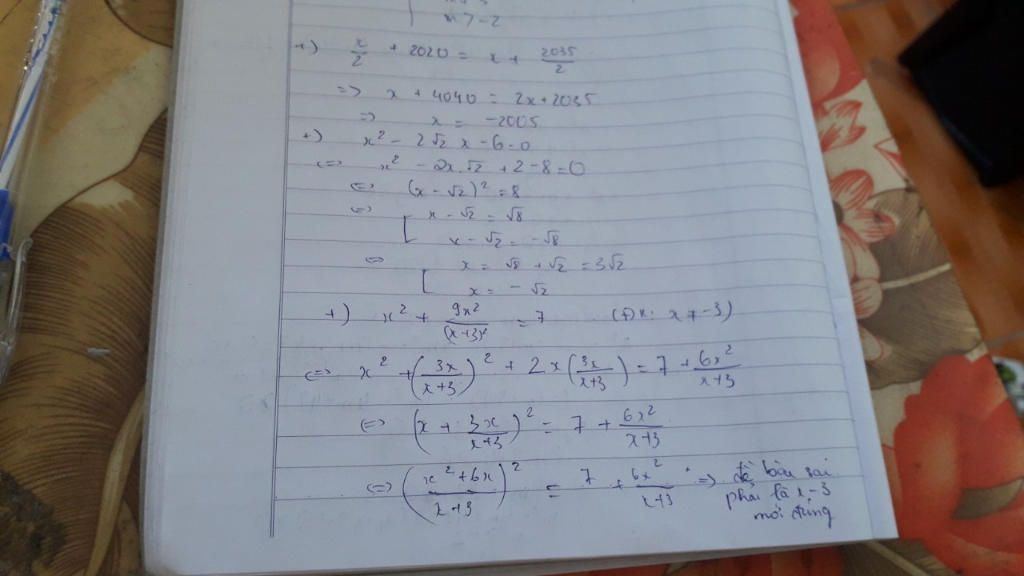 x > -2
+) x/2 + 2020 = x + 2035/2
=> x + 4040 = 2x + 2035
=> x = -2005
+) x² - 2√2 x - 6 = 0
<=> x² - 2x.√2 + 2 - 8 = 0
<=> (x - √2)² = 8
<=> [ x - √2 = √8
x - √2 = -√8
<=> [ x = √8 + √2 = 3√2
x = -√2
+) x² + 9x²/(x+3)² = 7 (ĐK: x ≠ -3)
<=> x² + (3x/x+3)² + 2x(3x/x+3) = 7 + 6x²/x+3
<=> (x + 3x/x+3)² = 7 + 6x²/x+3
<=> (x² + 6x/x+3)² = 7 + 6x²/x+3 => đề bài sai
phải là x-3
mới đúng